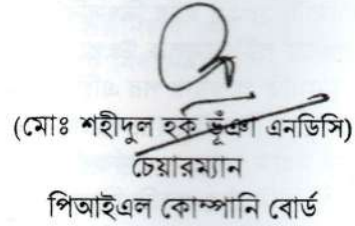 (মোঃ শহীদুল হক ভূঁঞা এনডিসি)
চেয়ারম্যান
পিআইএল কোম্পানি বোর্ড